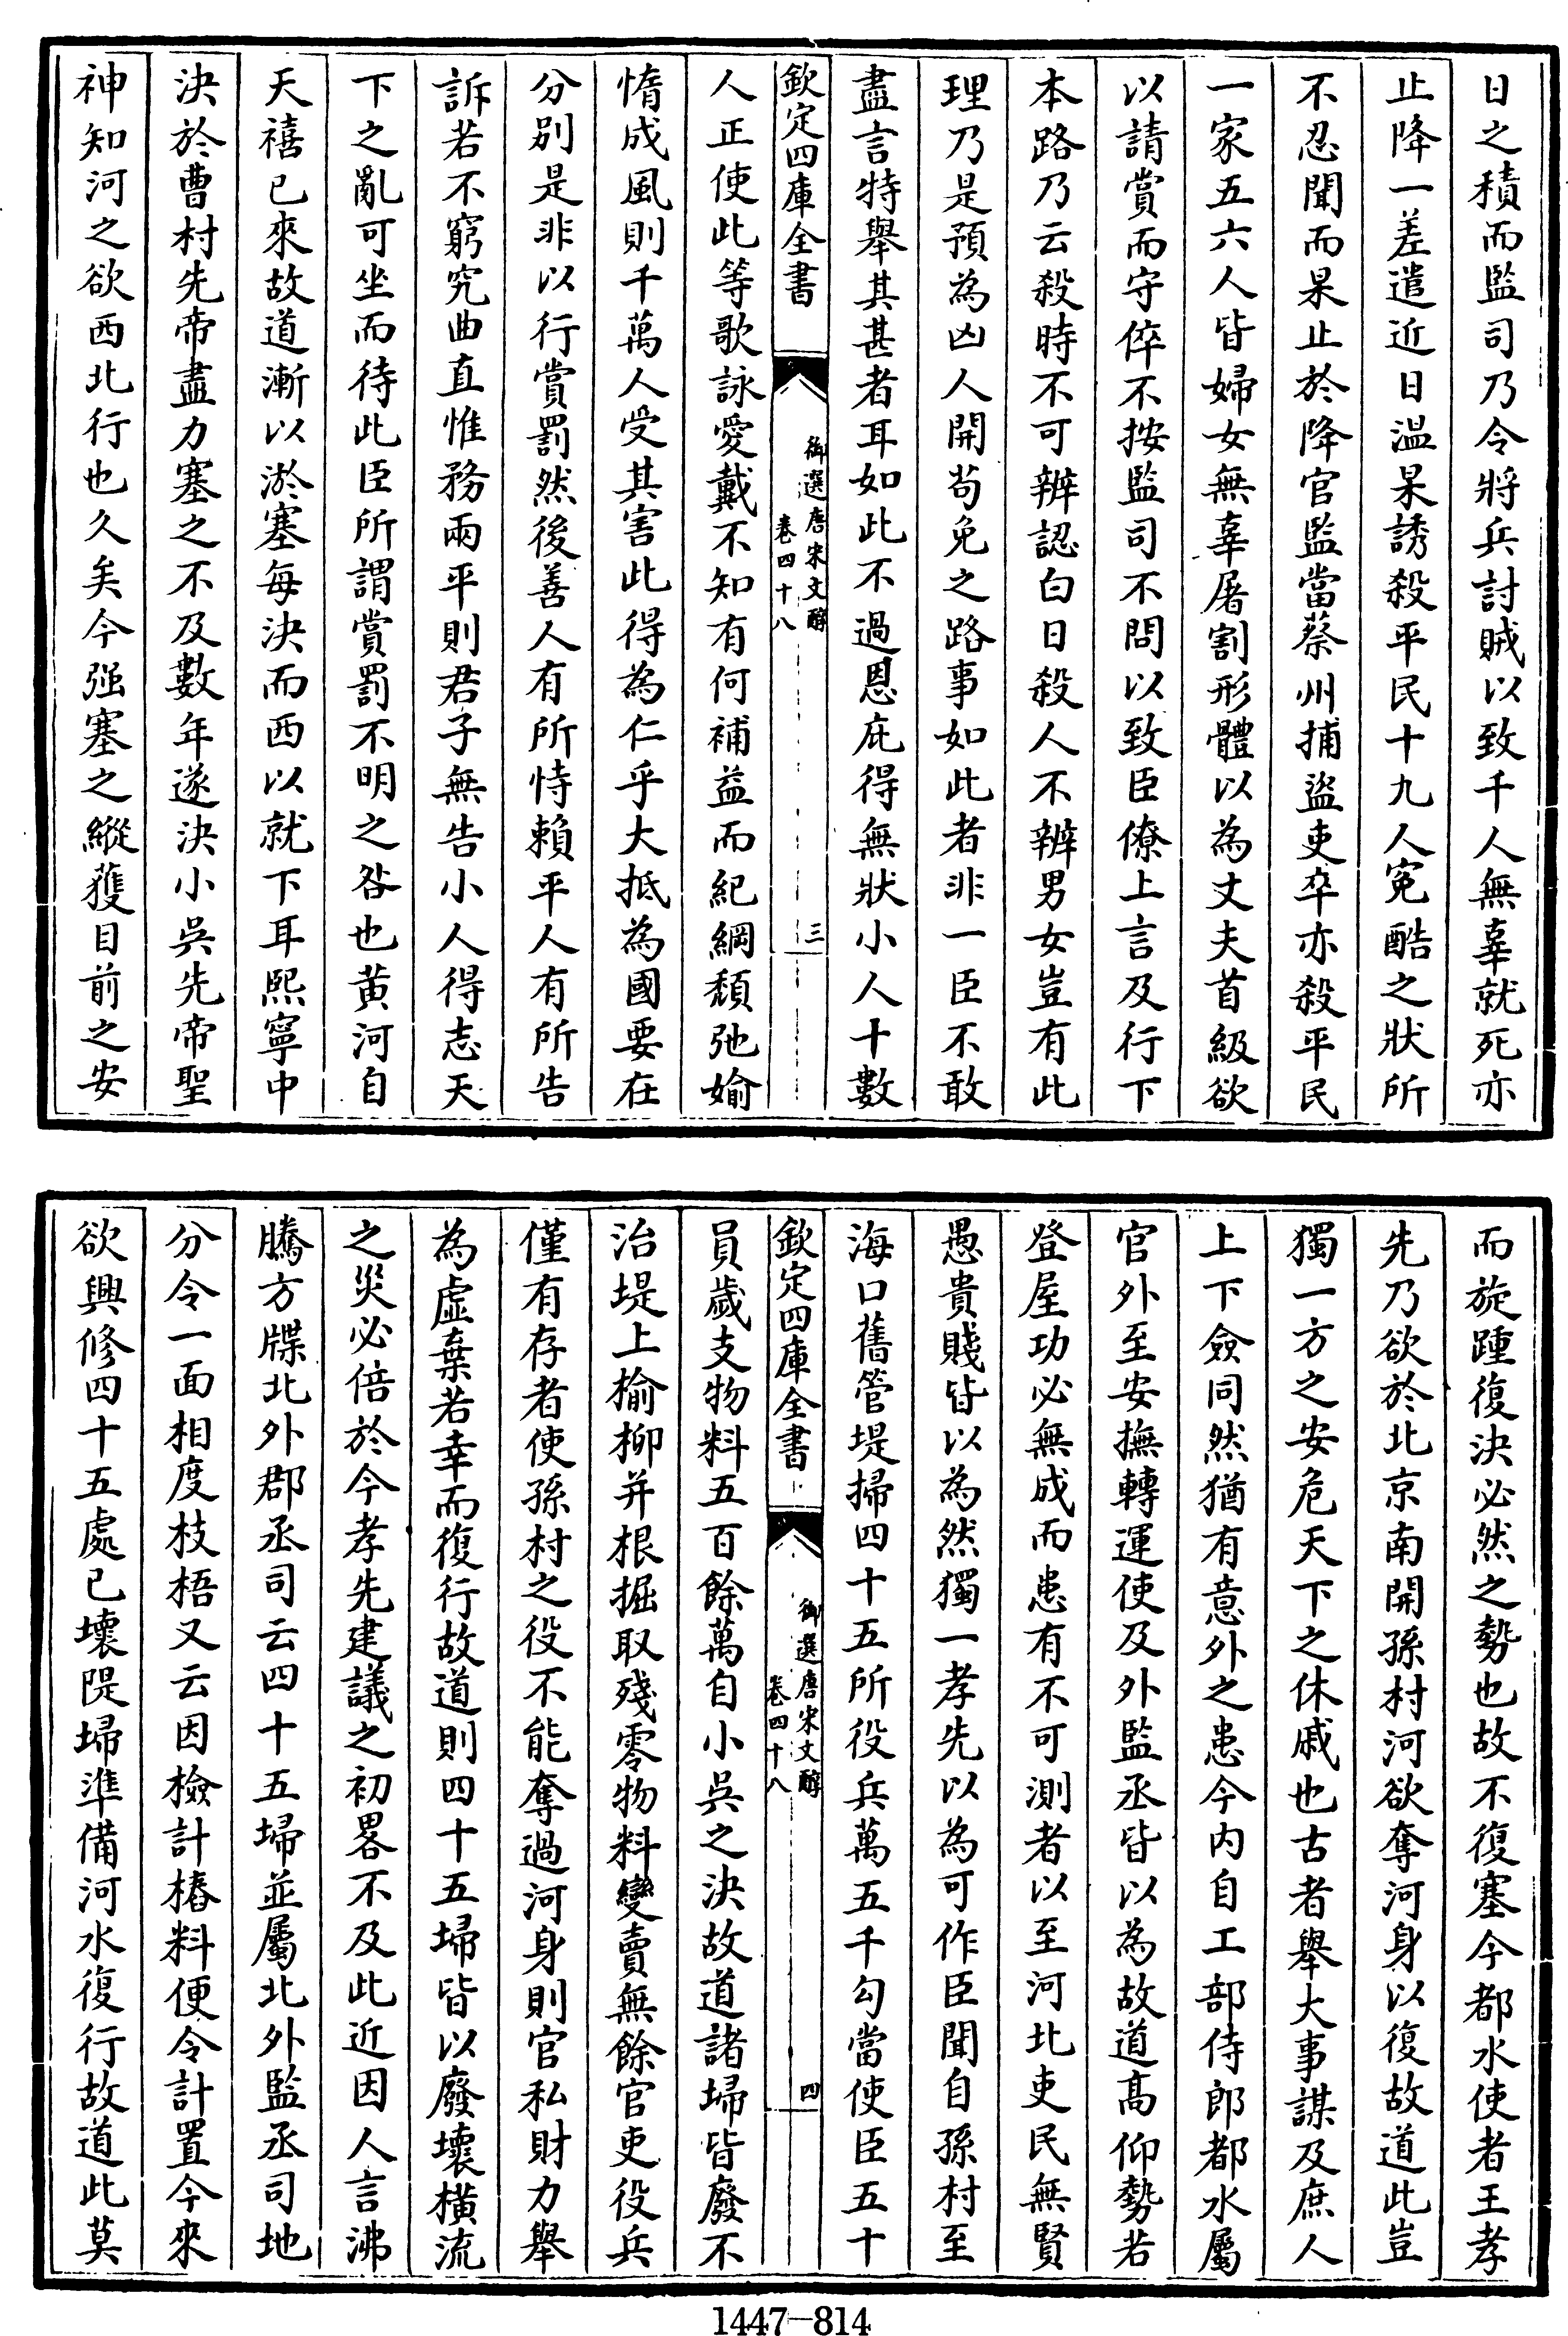 日之積而監司乃令將兵討賊以致千人無辜就死亦
止降一差遣近日温杲誘殺平民十九人冤酷之狀所
不忍聞而杲止於降官監當蔡州捕盜吏卒亦殺平民
一家五六人皆婦女無辜屠割形體以為丈夫首級欲
以請賞而守倅不按監司不問以致臣僚上言及行下
本路乃云殺時不可辨認白日殺人不辨男女豈有此
理乃是預為凶人開苟免之路事如此者非一臣不敢
盡言特舉其甚者耳如此不過恩庇得無狀小人十數
欽定四庫全書
御選唐宋文醇
卷四十八
三
人正使此等歌詠愛戴不知有何補益而紀綱頹弛媮
惰成風則千萬人受其害此得為仁乎大抵為國要在
分別是非以行賞罰然後善人有所恃賴平人有所告
訴若不窮究曲直惟務兩平則君子無告小人得志天
下之亂可坐而待此臣所謂賞罰不明之咎也黃河自
天禧已來故道漸以淤塞每決而西以就下耳熙寧中
決於曹村先帝盡力塞之不及數年遂決小吳先帝聖
神知河之欲西北行也久矣今强塞之縱獲目前之安
而旋踵復決必然之勢也故不復塞今都水使者王孝
先乃欲於北京南開孫村河欲奪河身以復故道此豈
獨一方之安危天下之休戚也古者舉大事謀及庶人
上下僉同然猶有意外之患今內自工部侍郎都水屬
官外至安撫轉運使及外監丞皆以為故道高仰勢若
登屋功必無成而患有不可測者以至河北吏民無賢
愚貴賤皆以為然獨一孝先以為可作臣聞自孫村至
海口舊管堤掃四十五所役兵萬五千勾當使臣五十
欽定四庫全書
御選唐宋文醇
卷四十八
四
員歲支物料五百餘萬自小吳之決故道諸埽皆廢不
治堤上榆柳并根掘取殘零物料變賣無餘官吏役兵
僅有存者使孫村之役不能奪過河身則官私財力舉
為虛棄若幸而復行故道則四十五埽皆以廢壞橫流
之災必倍於今孝先建議之初畧不及此近因人言沸
騰方牒北外郡丞司云四十五埽並屬北外監丞司地
分令一面相度枝梧又云因檢計樁料便令計置今來
欲興修四十五處已壞隄埽準備河水復行故道此莫
1447-814